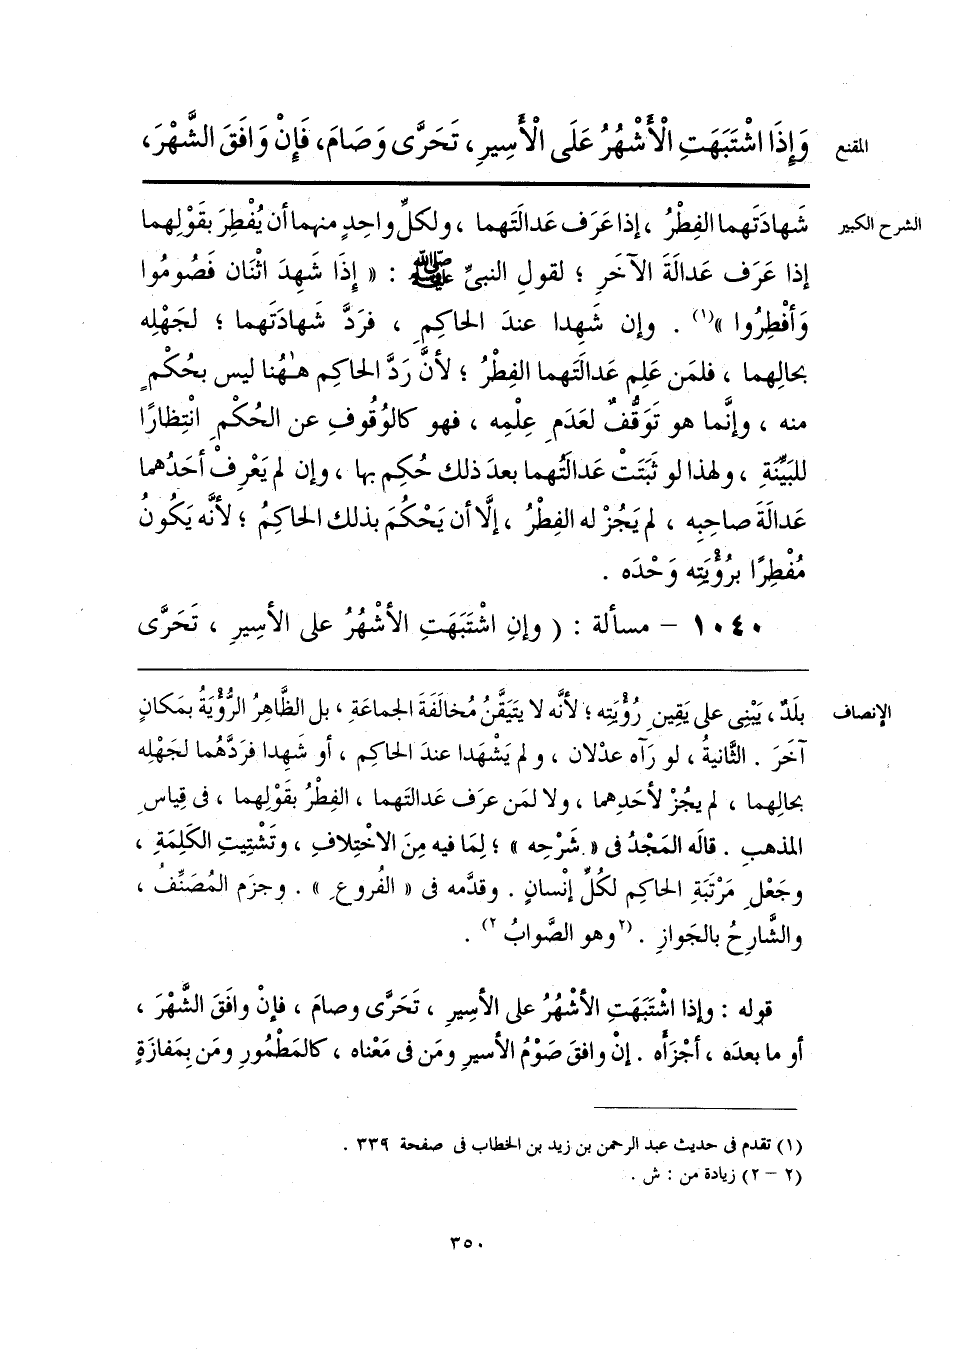 المقنع
وَإِذَا اشْتَبَهَتِ الْأَشْهُرُ عَلَى الْأَسِيرِ، تَحَرَّى وَصَامَ، فَإِنْ وَافَقَ الشَّهْرَ،
الشرح الكبير
شَهادَتَهما الفِطْرُ ، إذا عَرَف عَدالَتَهما ، ولكلِّ واحِدٍ منهما أن يُفْطِرَ بقَوْلِهما
إذا عَرَف عَدالَةَ الآخَرِ ؛ لقولِ النبيِّ ﷺ : « إِذَا شَهِدَ اثْنَان فَصُومُوا
وَأفْطِرُوا »(١) . وإن شَهِدا عندَ الحاكِمِ ، فرَدَّ شَهادَتَهما ؛ لجَهْلِه
بحالِهما ، فلمَن عَلِم عَدالَتَهما الفِطْرُ ؛ لأنَّ رَدَّ الحاكِمِ هـٰهُنا ليس بحُكْمٍ
منه ، وإنَّما هو تَوَقُّفٌ لعَدَمِ عِلْمِه ، فهو كالوُقُوفِ عن الحُكْمِ انْتِظارًا
للبَيِّنَةِ ، ولهذا لو ثَبَتَتْ عَدالَتُهما بعدَ ذلك حُكِم بها ، وإن لم يَعْرِفْ أحَدُهما
عَدالَةَ صاحِبِه ، لم يَجُزْ له الفِطْرُ ، إلَّا أن يَحْكُمَ بذلك الحاكِمُ ؛ لأنَّه يَكُونُ
مُفْطِرًا برُؤْيَتِه وَحْدَه .
١٠٤٠ – مسألة : ( وإنِ اشْتَبَهَتِ الأشْهُرُ على الأسِيرِ ، تَحَرَّى
الإنصاف
بلَدٌ ، يَبْنِى على يَقِينِ رُؤْيَتِه ؛ لأنَّه لا يَتَيَقَّنُ مُخالَفَةَ الجماعَةِ ، بل الظَّاهِرُ الرُّؤْيَةُ بمَكانٍ
آخَرَ . الثَّانيةُ ، لو رَآه عدْلان ، ولم يَشْهَدا عندَ الحاكِمِ ، أو شَهِدا فرَدَّهُما لجَهْلِه
بحالِهما ، لم يجُزْ لأحَدِهما ، ولا لمَن عرَف عَدالتَهما ، الفِطْرُ بقَوْلِهما ، فى قِياسِ
المذهبِ . قالَه المَجْدُ فى « شَرْحِه » ؛ لِمَا فيه مِنَ الاخْتِلافِ ، وتَشْتِيتِ الكَلِمَةِ ،
وجَعْلِ مَرْتَبَةِ الحاكِمِ لكُلِّ إنْسانٍ . وقدَّمه فى « الفُروعِ » . وجزَم المُصَنِّفُ ،
والشَّارِحُ بالجَوازِ . (٢وهو الصَّوابُ٢) .
قوله : وإذا اشْتَبَهَتِ الأشْهُرُ على الأسِيرِ ، تَحَرَّى وصامَ ، فإنْ وافَقَ الشَّهْرَ ،
أو ما بعدَه ، أجْزَأَه . إنْ وافقَ صَوْمُ الأسيرِ ومَن فى مَعْناه ، كالمَطْمُورِ ومَن بمَفازَةٍ
(١) تقدم فى حديث عبد الرحمن بن زيد بن الخطاب فى صفحة ٣٣٩ .
(٢ – ٢) زيادة من : ش .
٣٥٠